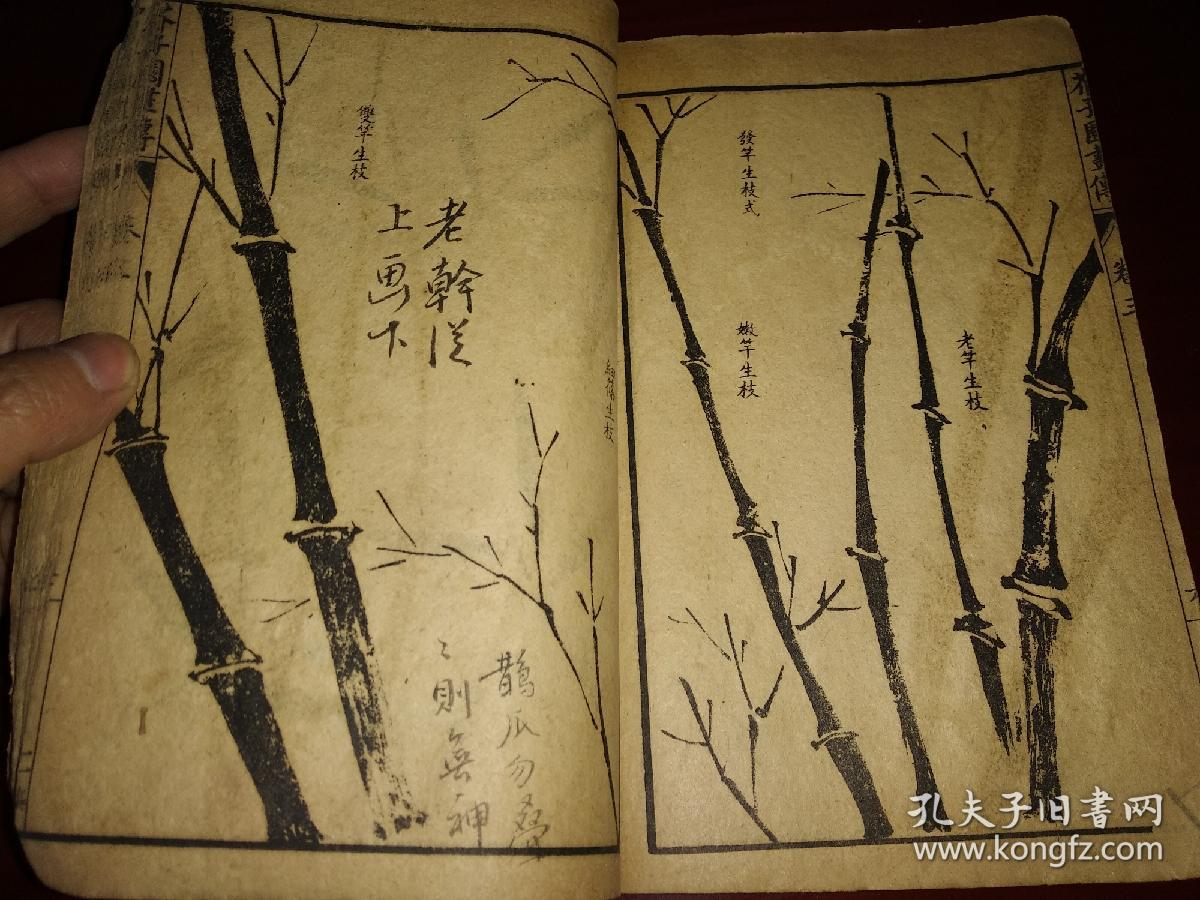 芥子園畫傳
卷三
發竿生枝式
老竿生枝
嫩竿生枝
細篠生枝
雙竿生枝
老幹従
上画下
鵲爪勿叠
〻則無神
孔夫子旧书网
www.kongfz.com